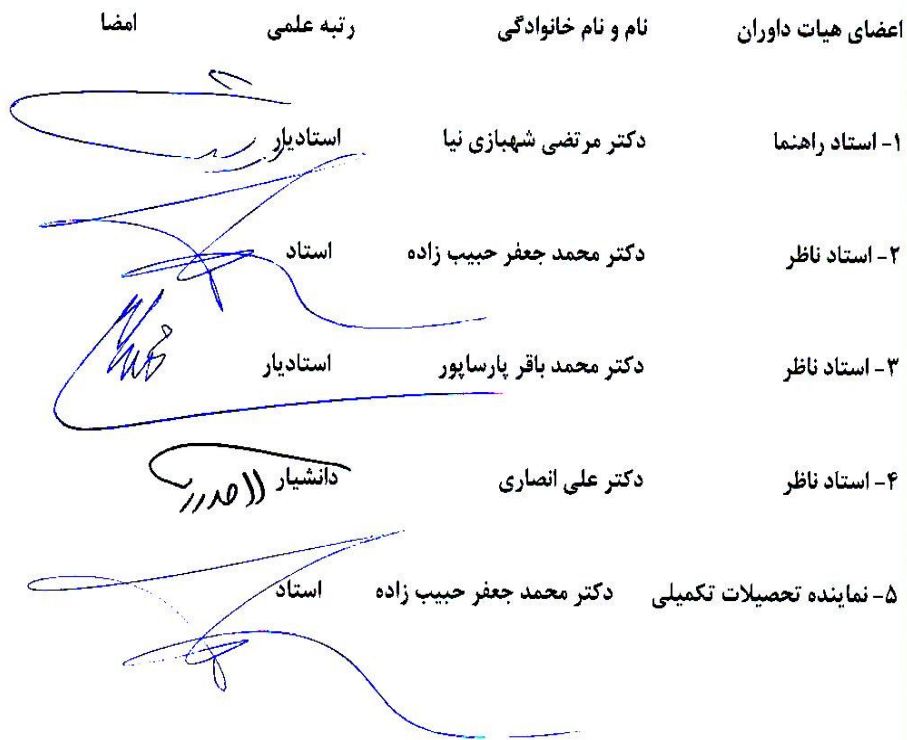 اعضای هیات داوران نام و نام خانوادگی رتبه علمی امضا
۱- استاد راهنما دکتر مرتضی شهبازی نیا استادیار
۲- استاد ناظر دکتر محمد جعفر حبیب زاده استاد
۳- استاد ناظر دکتر محمد باقر پارساپور استادیار
۴- استاد ناظر دکتر علی انصاری دانشیار
۵- نماینده تحصیلات تکمیلی دکتر محمد جعفر حبیب زاده استاد